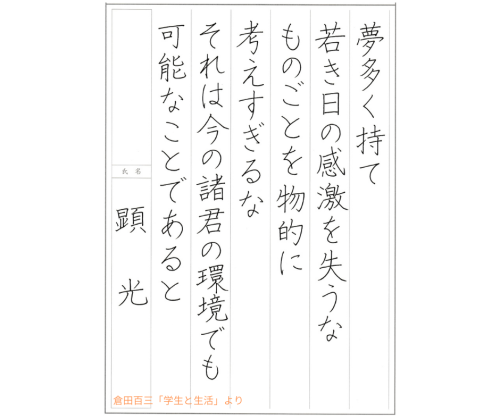 夢多く持て
若き日の感激を失うな
ものごとを物的に
考えすぎるな
それは今の諸君の環境でも
可能なことであると
氏名
顕光
倉田百三「学生と生活」より